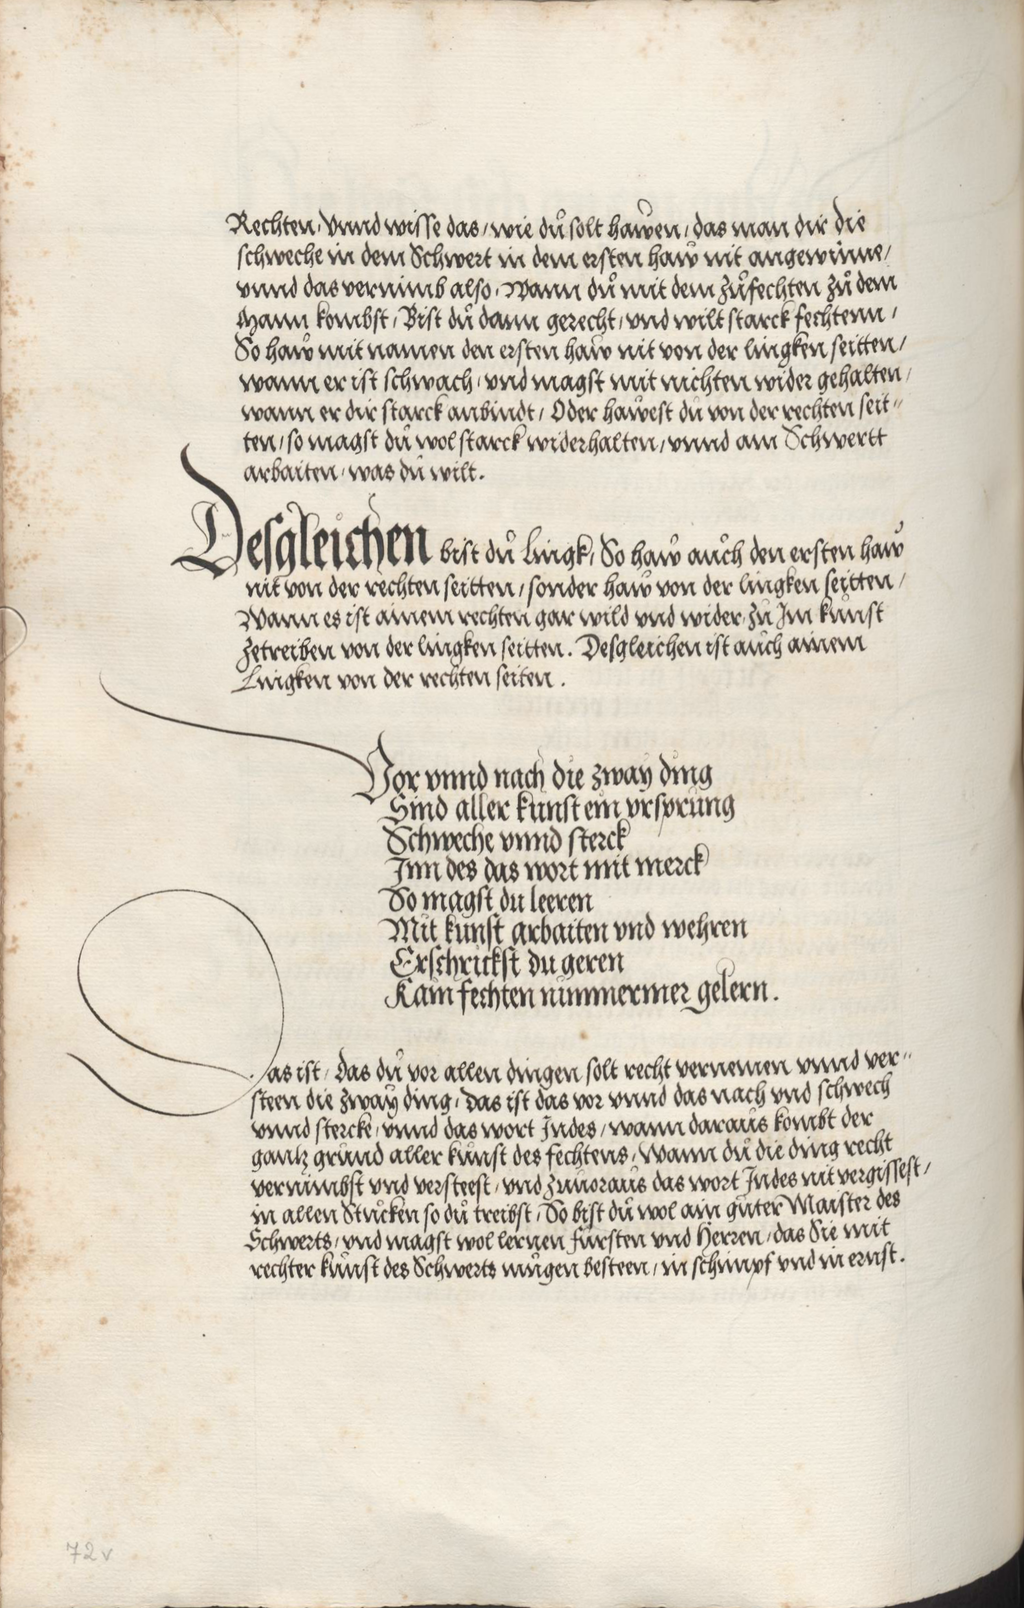 Rechten / Vnnd wisse das / wie dů solt hawen / das man dir die
schweche in dem Schwert in dem ersten haw nit angewinne /
vnnd das vernimb also / Wann dů mit dem zůfechten zů dem
Mann kombst / Bist dů dann gerecht / vnd wilt starck fechtenn /
So haw mit namen den ersten haw nit von der lingken seitten /
wann er ist schwach / vnd magst mit nichten wider gehalten /
wann er dir starck anbindt / Oder hawest du von der rechten seit=
ten / so magst dů wol starck widerhalten / vnnd am Schwertt
arbaiten / was dů wilt.
Desgleichen bist dů Lingk / So haw aůch den ersten haw
nit von der rechten seitten / sonder haw von der lingken seitten /
Wann es ist ainem rechten gar wild vnd wider / zů Im kůnst
zetreiben von der lingken seitten. Desgleichen ist aůch ainem
Lingken von der rechten seiten.
Vor vnnd nach die zway ding
Sind aller kůnst ein vrsprůng
Schweche vnnd sterck
Inn des das wort mit merck
So magst du leeren
Mit kůnst arbaiten vnd wehren
Erschrickst du geren
Kain fechten nimmermer gelern.
Das ist / Das dů vor allen dingen solt recht vernemen vnnd ver=
steen die zway ding / das ist das vor vnnd das nach vnd schwech
vnnd stercke / vnnd das wort Indes / wann daraůs kombt der
gantz grůnd aller kůnst des fechtens / Wann dů die ding recht
vernimbst vnd versteest / vnd zůuoraůs das wort Indes nit vergissest /
in allen Stůcken so dů treibst / So bist dů wol ain gůter Maister des
Schwerts / vnd magst wol lernen fürsten vnd Herren / das Sie mit
rechter kůnst des Schwerts můgen besteen / in schimpf vnd in ernst.
72v